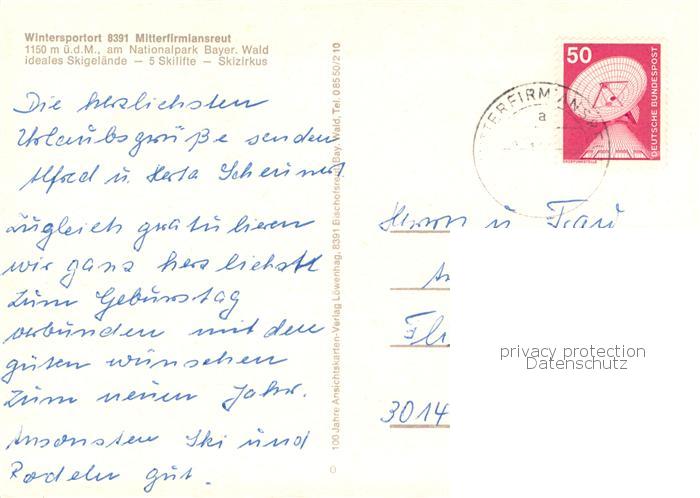 Wintersportort 8391 Mitterfirmiansreut
1150 m ü.d.M., am Nationalpark Bayer. Wald
ideales Skigelände — 5 Skilifte — Skizirkus
Die herzlichsten
Urlaubsgrüße senden
Alfred u. Herta
Zugleich gratulieren
wir ganz herzlichst
zum Geburstag
verbunden mit den
guten wünschen
zum neuen Jahr.
Ansonsten Ski und
Rodeln gut.
100 Jahre Ansichtskarten-Verlag Löwenhag, 8391 Bischofsreut/Bay. Wald, Tel. 08550/210
MITTERFIRMIANSREUT
a
50
DEUTSCHE BUNDESPOST
ERDEFUNKSTELLE
Herrn u Frau
3014
privacy protection
Datenschutz